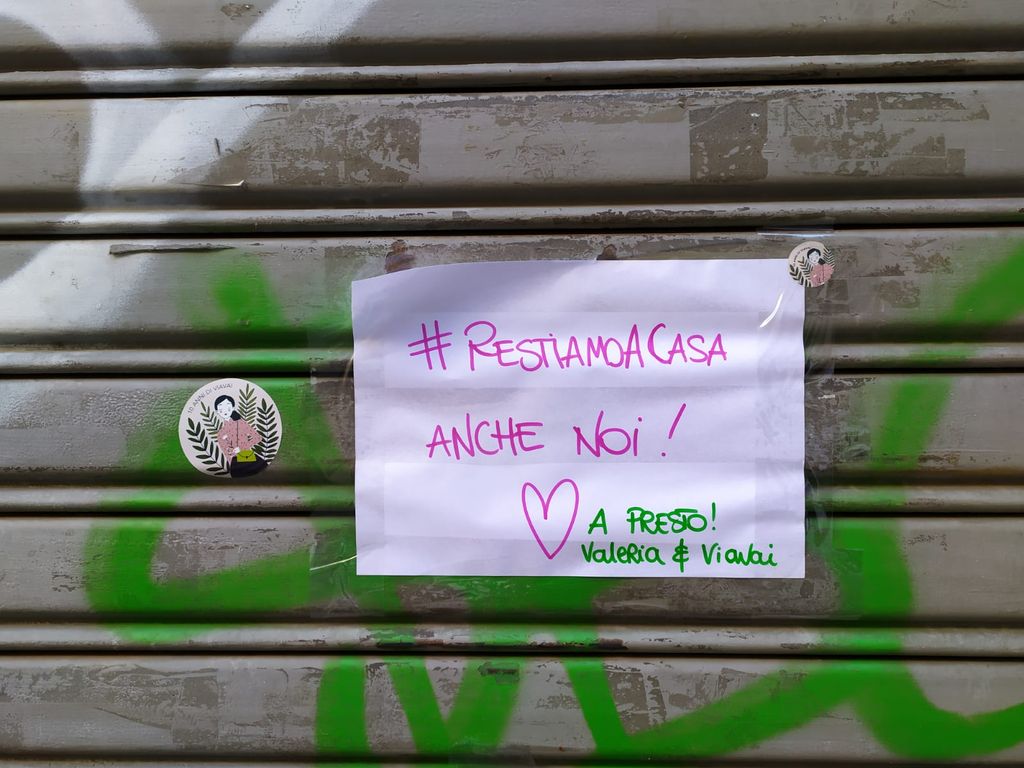 #RESTiAMOACASA
ANCHE NOi!
A PRESTO!
ValeRia & Viavai
10 ANNI DI VIAVAI